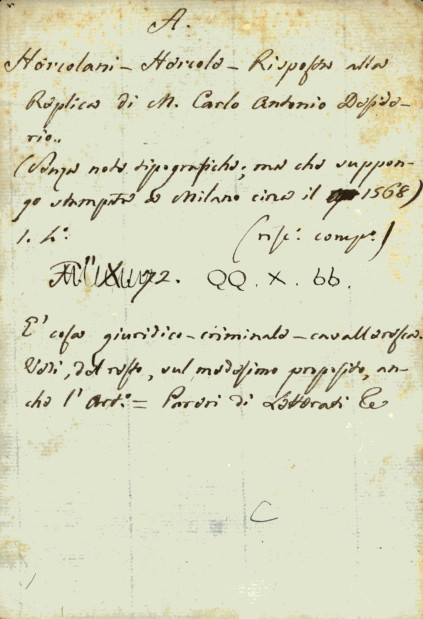 A.
Hercolani - Hercole - Risposta alla
Replica di M. Carlo Antonio Deside-
rio..
(Senza note tipografiche; ma che suppon-
go stampata a Milano circa il 1568)
1. 4°.
(risc. comp.)
72. QQ. X. 66.
E' cosa giuridico-criminale-cavalleresca.
Vedi, del resto, sul medesimo proposito, an-
che l'Art.° = Pareri di Letterati &c
C